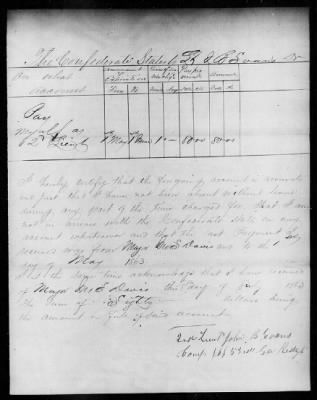 The Confederate States To J B Evans Dr
On what account
Commencement & Expiration
From To
Pay
Myself as
2d Lieut 1 May 1 June 1 80 00 80 00
I hereby certify that the foregoing account is accurate
and just that I have not been absent without leave
during any part of the time charged for that I am
not in arrears with the Confederate States on any
account whatsoever and that the last Payment I
received was from Major M E Davis was to the 1
day of May 1863
I at the same time acknowledge that I have received
of Major M E Davis this day of 1863
the sum of Eighty dollars being
the amount in full of said account
2nd Lieut John B Evans
Comp 53rd Ga Regt